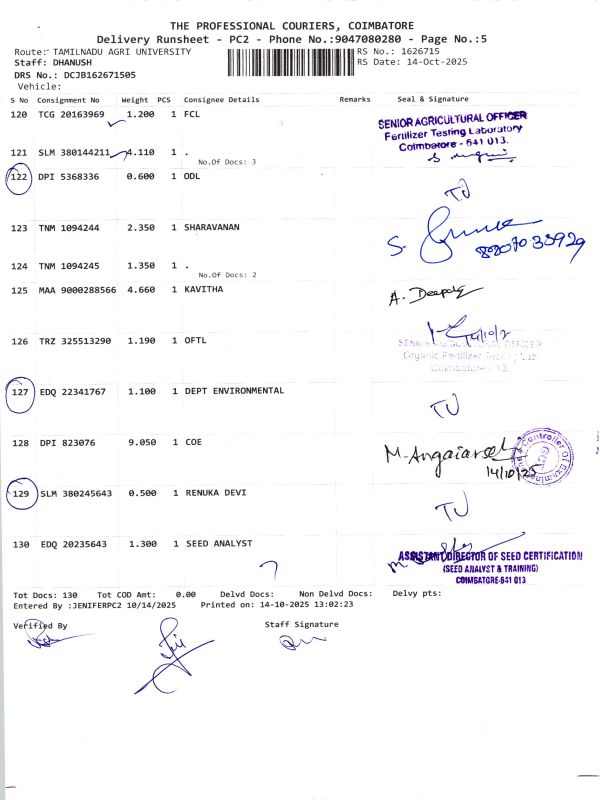 THE PROFESSIONAL COURIERS, COIMBATORE
Delivery Runsheet - PC2 - Phone No.:9047080280 - Page No.:5
Route: TAMILNADU AGRI UNIVERSITY RS No.: 1626715
Staff: DHANUSH RS Date: 14-Oct-2025
DRS No.: DCJB162671505
Vehicle:
S No Consignment No Weight PCS Consignee Details Remarks Seal & Signature
120 TCG 20163969 1.200 1 FCL
SENIOR AGRICULTURAL OFFICER
Fertilizer Testing Laboratory
Coimbatore - 641 013.
121 SLM 380144211 4.110 1 .
No.Of Docs: 3
122 DPI 5368336 0.600 1 ODL
TJ
123 TNM 1094244 2.350 1 SHARAVANAN
S.
124 TNM 1094245 1.350 1 .
No.Of Docs: 2
125 MAA 9000288566 4.660 1 KAVITHA
A. Deepa
126 TRZ 325513290 1.190 1 OFTL
14/10/2
SENIOR AGRICULTURAL OFFICER
Organic Fertilizer Testing Lab
Coimbatore - 13.
127 EDQ 22341767 1.100 1 DEPT ENVIRONMENTAL
TJ
128 DPI 823076 9.050 1 COE
M. Angaiarsel
14/10/25
Controller Of Examinations
129 SLM 380245643 0.500 1 RENUKA DEVI
TJ
130 EDQ 20235643 1.300 1 SEED ANALYST
7
ASSISTANT DIRECTOR OF SEED CERTIFICATION
(SEED ANALYST & TRAINING)
COIMBATORE-641 013
Tot Docs: 130 Tot COD Amt: 0.00 Delvd Docs: Non Delvd Docs: Delvy pts:
Entered By :JENIFERPC2 10/14/2025 Printed on: 14-10-2025 13:02:23
Verified By Staff Signature